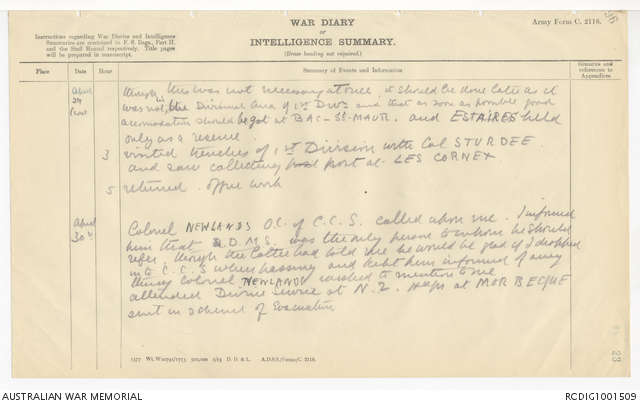 WAR DIARY
or
INTELLIGENCE SUMMARY.
(Erase heading not required.)
Army Form C. 2118.
Instructions regarding War Diaries and Intelligence
Summaries are contained in F. S. Regs., Part II.
and the Staff Manual respectively. Title pages
will be prepared in manuscript.
Place Date Hour Summary of Events and Information Remarks and references to Appendices
April 29 Cont though this was not necessary at once it should be done later as it
was not in the Divisional Area of 1st Divn and that as soon as possible good
accomodation should be got at BAC-St-MAUR. and ESTAIRES held
only as a reserve.
3 visited trenches of 1st Division with Col STURDEE
and saw collecting post at LES CORNEX
5 returned. Office work
April 30th Colonel NEWLANDS O.C. of C.C.S. called upon me. I informed
him that D.D.M.S. was the only person to whom he should
refer, though the latter had told me he would be glad if I dropped
into C.C.S when passing and kept him informed of any
thing Colonel NEWLANDS wished to mention to me
attended Divine Service at N.Z. Hqrs at MORBECQUE
sent in scheme of Evacuation
1577 Wt. W10791/1773 500,000 1/15 D. D. & L. A.D.S.S./Forms/C. 2118.
23
AUSTRALIAN WAR MEMORIAL
RCDIG1001509